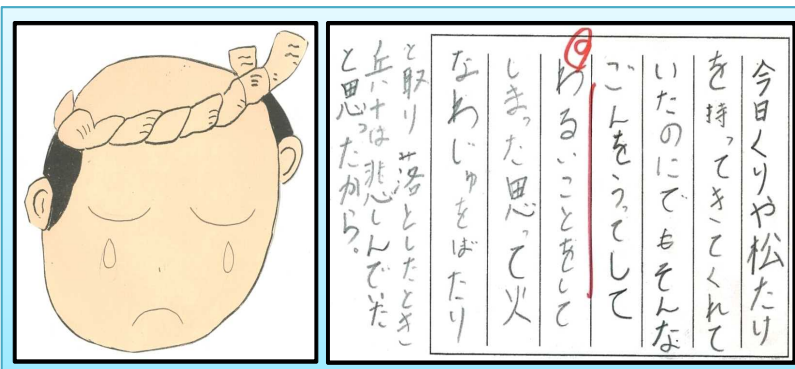 今日くりや松たけ
を持ってきてくれて
いたのにでもそんな
ごんをうってして
わるいことをして
しまった思って火
なわじゅをばたり
と取り落としたとき
兵十は悲しんでいた
と思ったから。